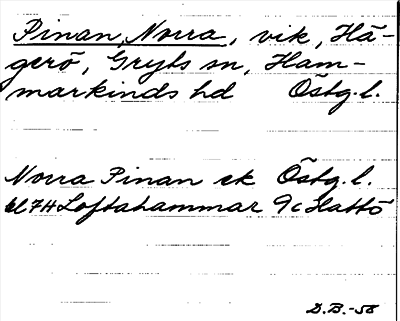 Pinan, Norra, vik, Hä-
gerö, Gryts sn, Ham-
markinds hd Östg. l.
Norra Pinan ek Östg. l.
bl 74 Loftahammar 9c Hattö
D.B.-58